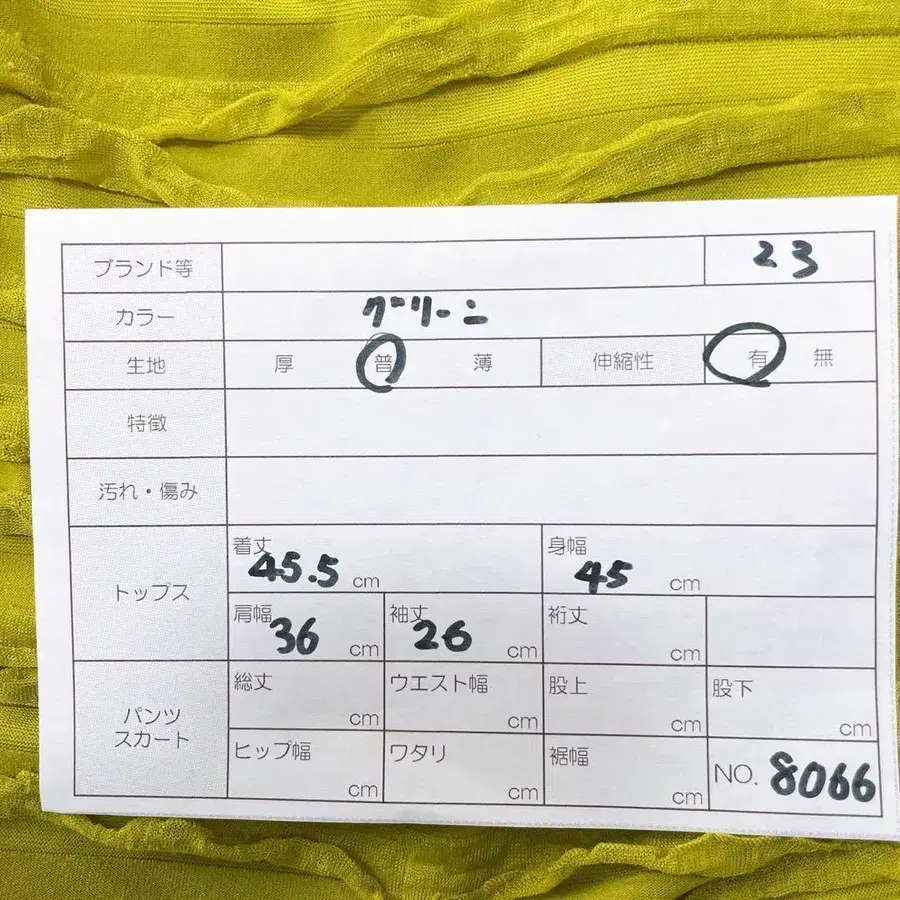 ブランド等 23
カラー グリーン
生地 厚 普 薄 伸縮性 有 無
特徴
汚れ・傷み
トップス
着丈 45.5 cm 身幅 45 cm
肩幅 36 cm 袖丈 26 cm 裄丈 cm
パンツ
スカート
総丈 cm ウエスト幅 cm 股上 cm 股下 cm
ヒップ幅 cm ワタリ cm 裾幅 cm NO. 8066